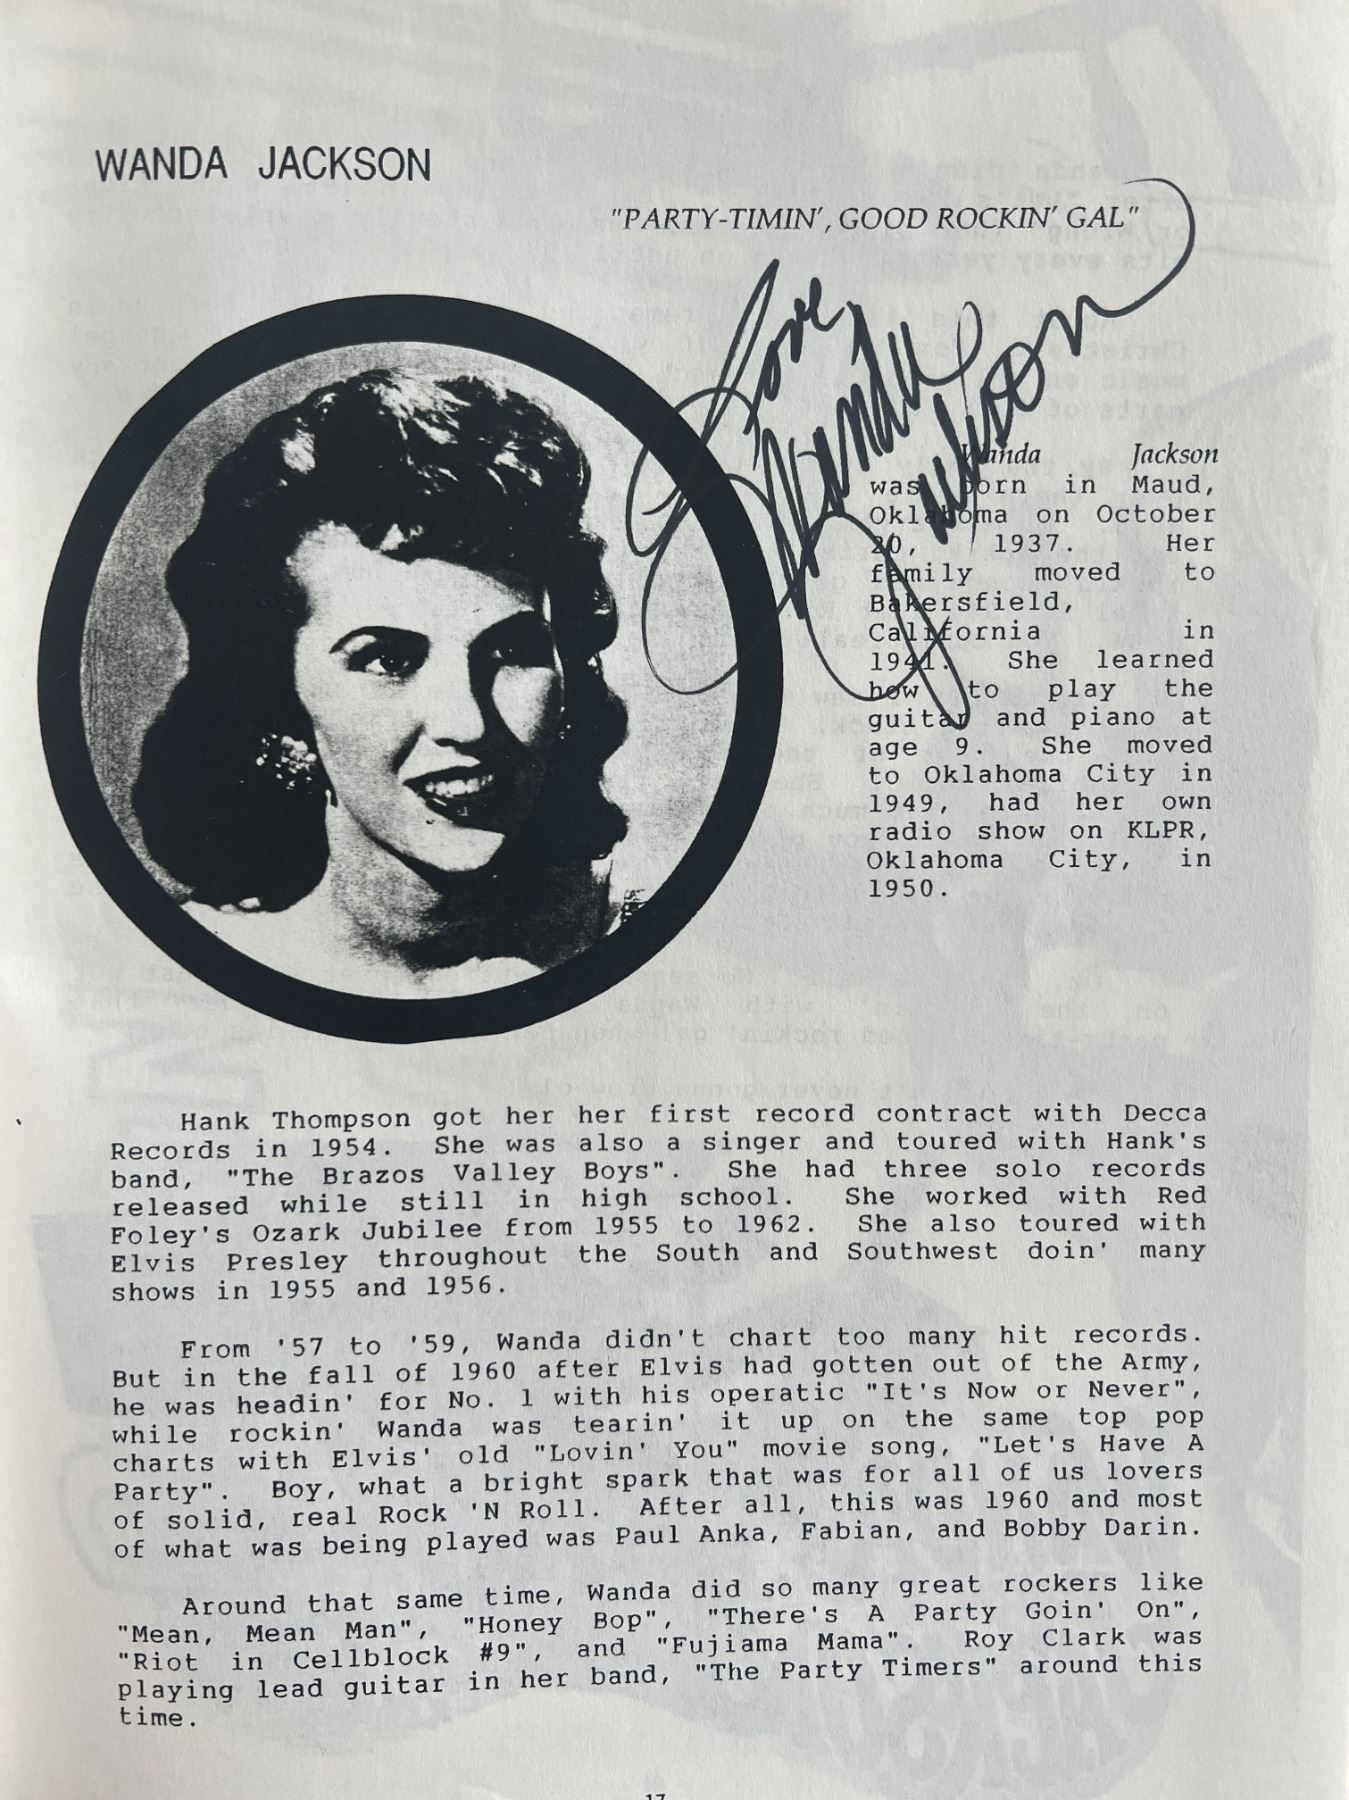 WANDA JACKSON
"PARTY-TIMIN', GOOD ROCKIN' GAL"
Love
Wanda
Jackson
Wanda Jackson
was born in Maud,
Oklahoma on October
20, 1937. Her
family moved to
Bakersfield,
California in
1941. She learned
how to play the
guitar and piano at
age 9. She moved
to Oklahoma City in
1949, had her own
radio show on KLPR,
Oklahoma City, in
1950.
Hank Thompson got her her first record contract with Decca
Records in 1954. She was also a singer and toured with Hank's
band, "The Brazos Valley Boys". She had three solo records
released while still in high school. She worked with Red
Foley's Ozark Jubilee from 1955 to 1962. She also toured with
Elvis Presley throughout the South and Southwest doin' many
shows in 1955 and 1956.
From '57 to '59, Wanda didn't chart too many hit records.
But in the fall of 1960 after Elvis had gotten out of the Army,
he was headin' for No. 1 with his operatic "It's Now or Never",
while rockin' Wanda was tearin' it up on the same top pop
charts with Elvis' old "Lovin' You" movie song, "Let's Have A
Party". Boy, what a bright spark that was for all of us lovers
of solid, real Rock 'N Roll. After all, this was 1960 and most
of what was being played was Paul Anka, Fabian, and Bobby Darin.
Around that same time, Wanda did so many great rockers like
"Mean, Mean Man", "Honey Bop", "There's A Party Goin' On",
"Riot in Cellblock #9", and "Fujiama Mama". Roy Clark was
playing lead guitar in her band, "The Party Timers" around this
time.
17